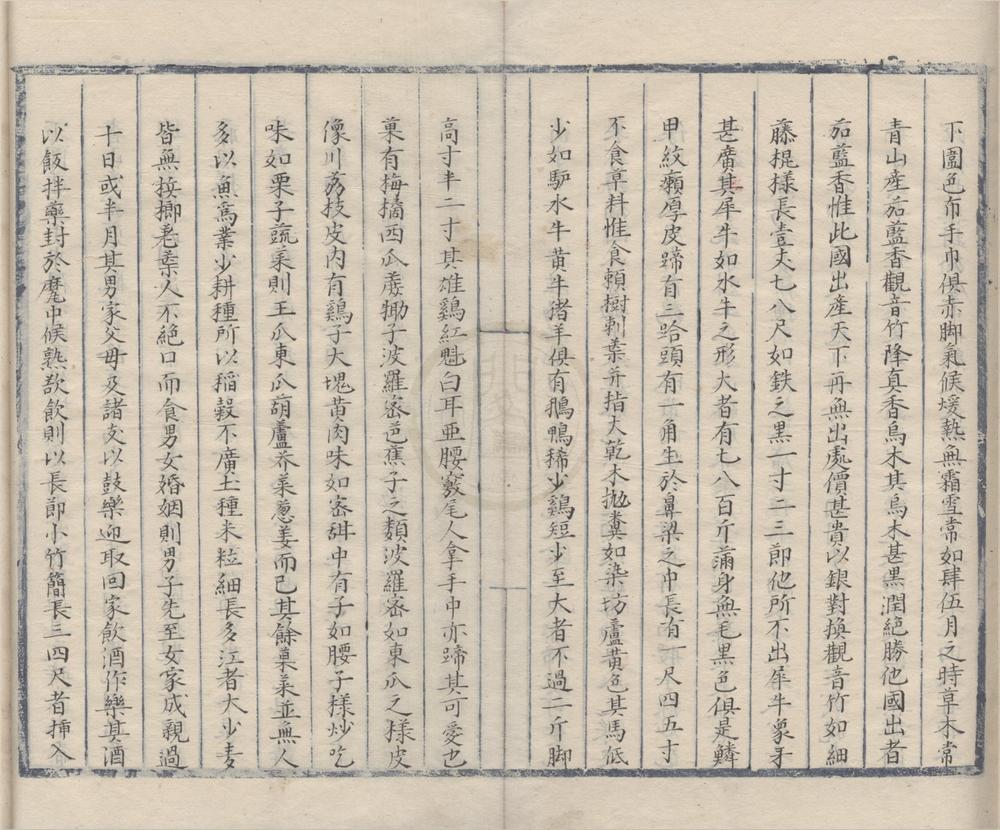 下圍色布手巾俱赤脚氣候煖熱無霜雪常如肆伍月之時草木常
青山產茄藍香觀音竹降真香烏木其烏木甚黑潤絶勝他國出者
茄藍香惟此國出產天下再無出處價甚貴以銀對換觀音竹如細
藤棍樣長壹丈七八尺如鉄之黑一寸二三節他所不出犀牛象牙
甚廣其犀牛如水牛之形大者有七八百斤滿身無毛黑色俱是鱗
甲紋癩厚皮蹄有三跲頭有一角生於鼻梁之中長有一尺四五寸
不食草料惟食頼樹刺葉并指大乾木抛糞如染坊蘆黄色其馬低
少如馿水牛黄牛猪羊俱有鵝鴨稀少鷄短少至大者不過二斤脚
高寸半二寸其雄鷄紅魁白耳亜腰竅尾人拿手中亦蹄其可愛也
菓有梅橘西瓜蔗椰子波羅宻芭蕉子之類波羅宻如東瓜之様皮
像川荔枝皮内有鷄子大塊黄肉味如宻甜中有子如腰子様炒吃
味如栗子蔬菜則王瓜東瓜葫蘆芥菜葱姜而已其餘菓菜並無人
多以魚爲業少耕種所以稲穀不廣土種米粒細長多江者大少麦
皆無梹榔荖葉人不絶口而食男女婚姻則男子先至女家成親過
十日或半月其男家父母及諸友以鼓樂迎取回家飲酒作樂其酒
以飯拌藥封於甕中候熟欲飲則以長節小竹簡長三四尺者揷入